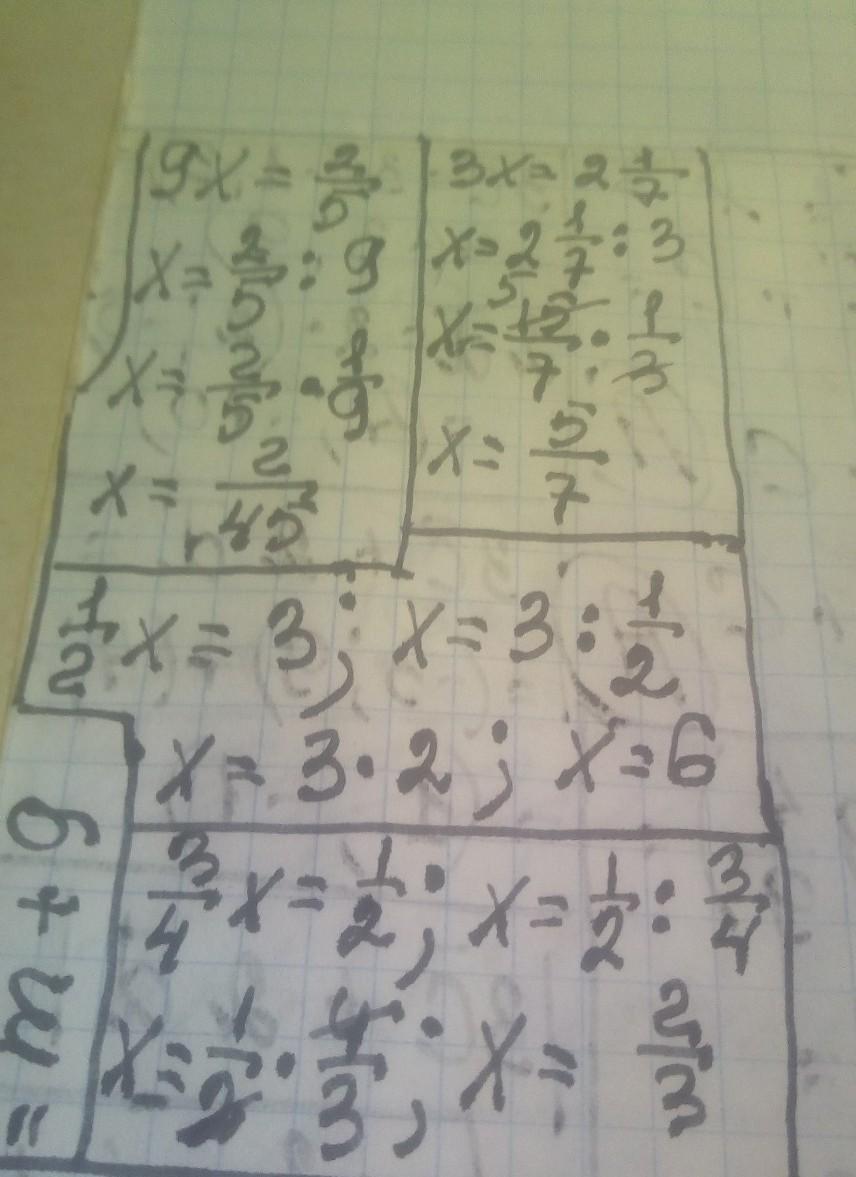 9x = 2/5
x = 2/5 : 9
x = 2/5 · 1/9
x = 2/45
3x = 2 1/7
x = 2 1/7 : 3
x = 15/7 · 1/3
x = 5/7
1/2 x = 3; x = 3 : 1/2
x = 3 · 2; x = 6
3/4 x = 1/2; x = 1/2 : 3/4
x = 1/2 · 4/3; x = 2/3